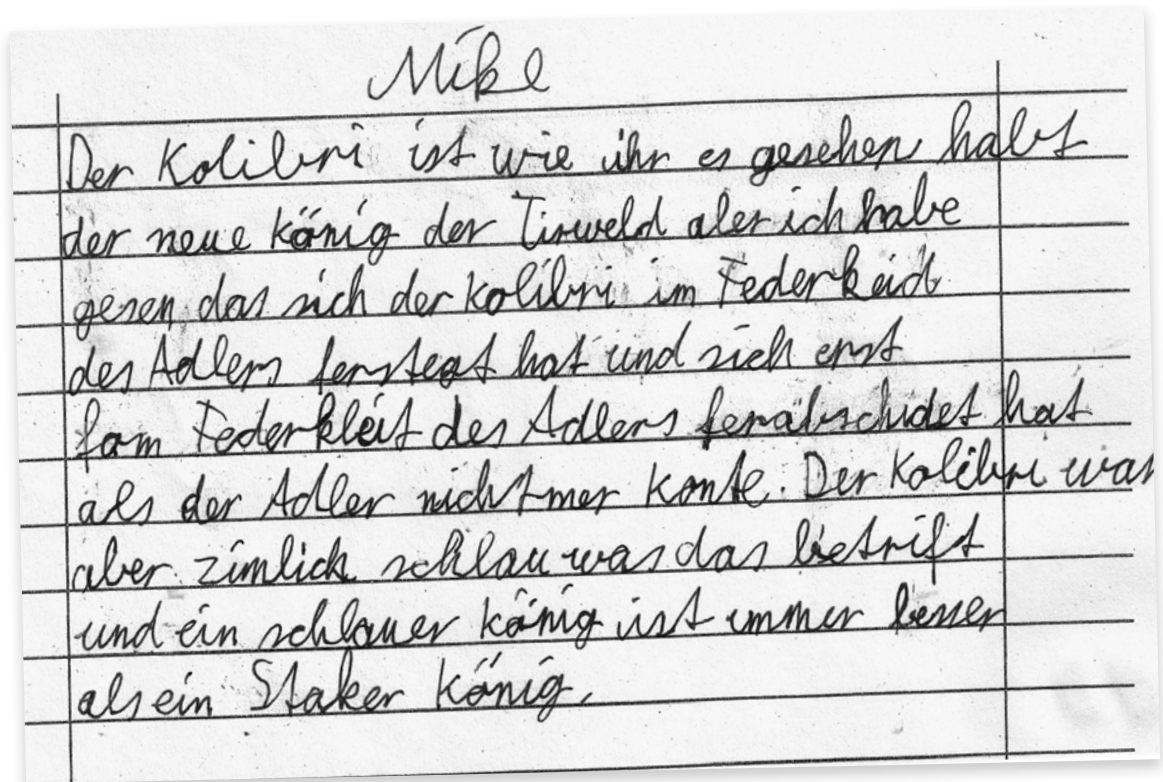 Mike
Der Kolibri ist wie ihr es gesehen habt
der neue könig der Tirweld aber ich habe
gesen das sich der kolibri im Federkeid
des Adlers fersteat hat und sich erst
fom Federkleit des Adlers feräbschidet hat
als der Adler nicht mer konte. Der Kolibri war
aber zimlich schlau was das betrift
und ein schlauer könig ist immer besser
als ein Staker König.